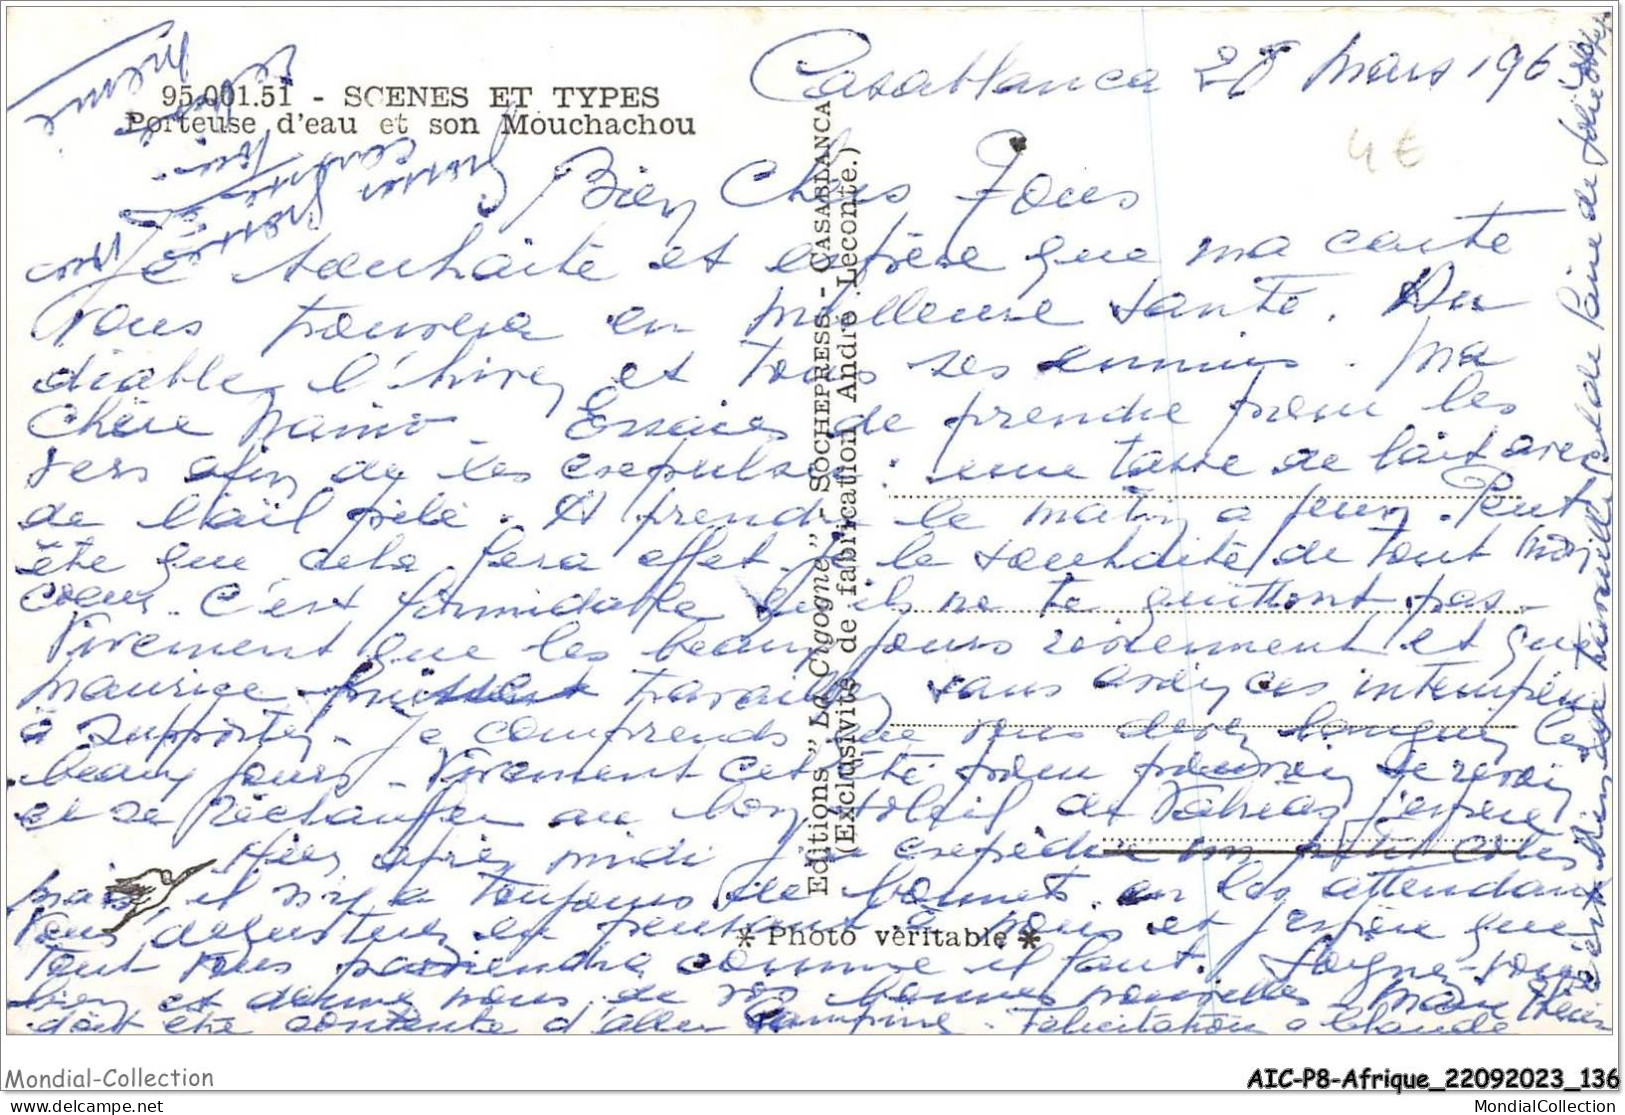 95.001.51 - SCENES ET TYPES
Porteuse d'eau et son Mouchachou
Casablanca 28 Mars 196
4€
Bien Chers Tous
Je souhaite et espère que ma carte
vous trouvera en meilleure santé. Au
diable l'hiver et tous ses ennuis. Ma
Chère Maino. Essaies de prendre pour les
vers afin de les expulser. une tasse de lait avec
de l'ail pilé. A prendre le matin a jeun. Peut
être que cela fera effet. Je le souhaite de tout mon
coeur. C'est formidable qu'ils ne te quittent pas.
Vivement que les beaux jours reviennent et que
Maurice puisse travailler sans avoir ces intempéries
à supporter. Je comprends que vous devez languir les
beaux jours. Vivement cet été pour pouvoir se revoir
et se réchauffer au bon soleil de Valréas j'espère
Hier après midi j'ai expédié un petit colis
mais il n'y a toujours de bonnets. en les attendant
vous dégusterez en pensant à nous et j'espère que
tout vous parviendra comme il faut. Soignez-vous
bien et donnez nous de vos bonnes nouvelles. Marie
doit être contente d'aller. Félicitation a Claude
Editions "La Cigogne" - SOCHEPRESS - CASABLANCA
(Exclusivité de fabrication André Leconte.)
* Photo véritable *
Mondial-Collection
AIC-P8-Afrique_22092023_136
MondialCollection